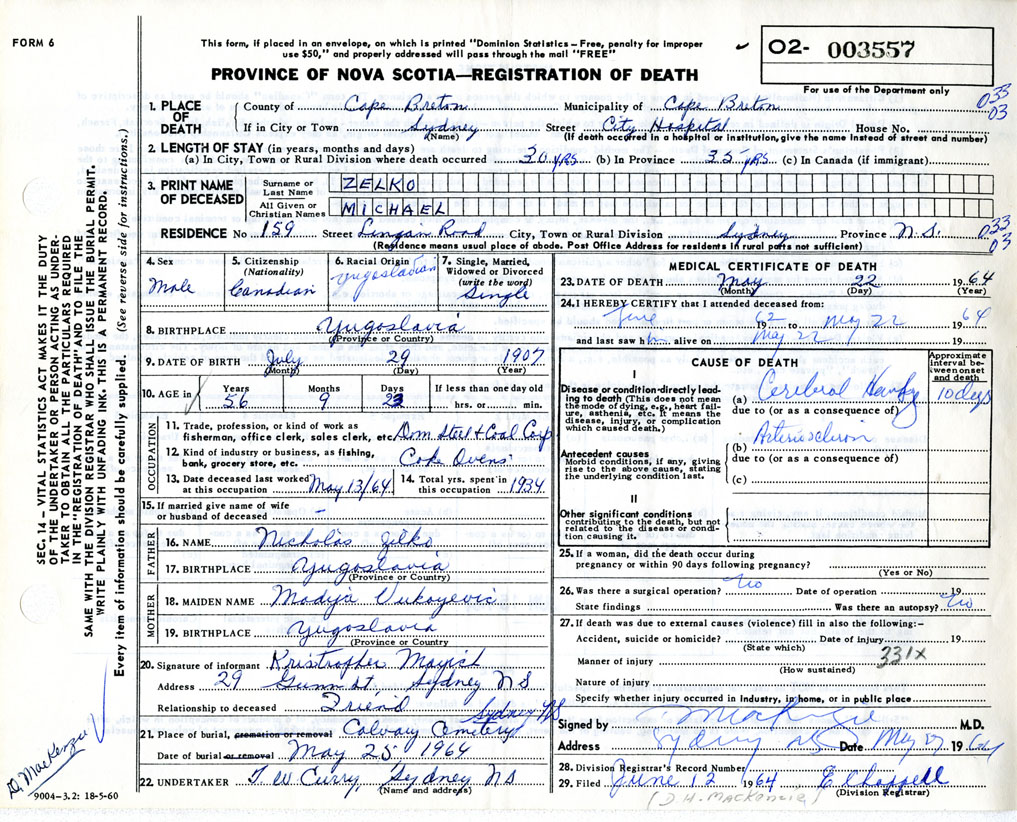 FORM 6
This form, if placed in an envelope, on which is printed "Dominion Statistics – Free, penalty for improper
use $50," and properly addressed will pass through the mail "FREE"
PROVINCE OF NOVA SCOTIA—REGISTRATION OF DEATH
02- 003557
For use of the Department only
033
03
1. PLACE OF DEATH
County of Cape Breton Municipality of Cape Breton
If in City or Town Sydney Street City Hospital House No.
(Name) (If death occurred in a hospital or institution, give the name instead of street and number)
2. LENGTH OF STAY (in years, months and days)
(a) In City, Town or Rural Division where death occurred 30 yrs (b) In Province 35 yrs (c) In Canada (if immigrant)
3. PRINT NAME OF DECEASED
Surname or Last Name ZELKO
All Given or Christian Names MICHAEL
RESIDENCE No 159 Street Lingan Road City, Town or Rural Division Sydney Province N.S.
033
03
(Residence means usual place of abode. Post Office Address for residents in rural parts not sufficient)
4. Sex
Male
5. Citizenship
(Nationality)
Canadian
6. Racial Origin
Yugoslavian
7. Single, Married,
Widowed or Divorced
(write the word)
Single
8. BIRTHPLACE Yugoslavia
(Province or Country)
9. DATE OF BIRTH July 29 1907
(Month) (Day) (Year)
10. AGE in
Years Months Days If less than one day old
56 9 23 hrs. or min.
OCCUPATION
11. Trade, profession, or kind of work as
fisherman, office clerk, sales clerk, etc. Dom Steel + Coal Corp
12. Kind of industry or business, as fishing,
bank, grocery store, etc. Coke Ovens
13. Date deceased last worked
at this occupation May 13/64
14. Total yrs. spent in
this occupation 1934
15. If married give name of wife
or husband of deceased –
FATHER
16. NAME Nicholas Zelko
17. BIRTHPLACE Yugoslavia
(Province or Country)
MOTHER
18. MAIDEN NAME Madya Vukoyevic
19. BIRTHPLACE Yugoslavia
(Province or Country
20. Signature of informant Kristropher
Address 29 Gunn St. Sydney NS
Relationship to deceased Friend
Sydney NS
21. Place of burial, cremation or removal Calvary Cemetery
Date of burial or removal May 25 1964
22. UNDERTAKER T. W. Curry, Sydney NS
(Name and address)
9004-3.2: 18-5-60
MEDICAL CERTIFICATE OF DEATH
23. DATE OF DEATH May 22 1964
(Month) (Day) (Year)
24. I HEREBY CERTIFY that I attended deceased from:
June 1962 to May 22 1964
and last saw him alive on May 22 19
CAUSE OF DEATH
Approximate interval between onset and death
I
Disease or condition directly leading
to death (This does not mean
the mode of dying, e.g., heart failure,
asthenia, etc. It means the
disease, injury, or complication
which caused death.)
(a) Cerebral 10 days
due to (or as a consequence of)
(b)
due to (or as a consequence of)
(c)
Antecedent causes
Morbid conditions, if any, giving
rise to the above cause, stating
the underlying condition last.
II
Other significant conditions
contributing to the death, but not
related to the disease or condition
causing it.
25. If a woman, did the death occur during
pregnancy or within 90 days following pregnancy?
(Yes or No)
26. Was there a surgical operation? no Date of operation 19
State findings Was there an autopsy? No
27. If death was due to external causes (violence) fill in also the following:–
Accident, suicide or homicide? Date of injury 19
(State which)
331X
Manner of injury
(How sustained)
Nature of injury
Specify whether injury occurred in industry, in home, or in public place
Signed by MacKenzie M.D.
Address Sydney NS Date May 1964
28. Division Registrar's Record Number
29. Filed June 12 1964 E Chappell
(Division Registrar)
(D. H. MacKenzie)
SEC. 114 – VITAL STATISTICS ACT MAKES IT THE DUTY
OF THE UNDERTAKER OR PERSON ACTING AS UNDERTAKER
TO OBTAIN ALL THE PARTICULARS REQUIRED
IN THE "REGISTRATION OF DEATH" AND TO FILE THE
SAME WITH THE DIVISION REGISTRAR WHO SHALL ISSUE THE BURIAL PERMIT.
WRITE PLAINLY WITH UNFADING INK. THIS IS A PERMANENT RECORD.
Every item of information should be carefully supplied. (See reverse side for instructions.)
D. MacKenzie